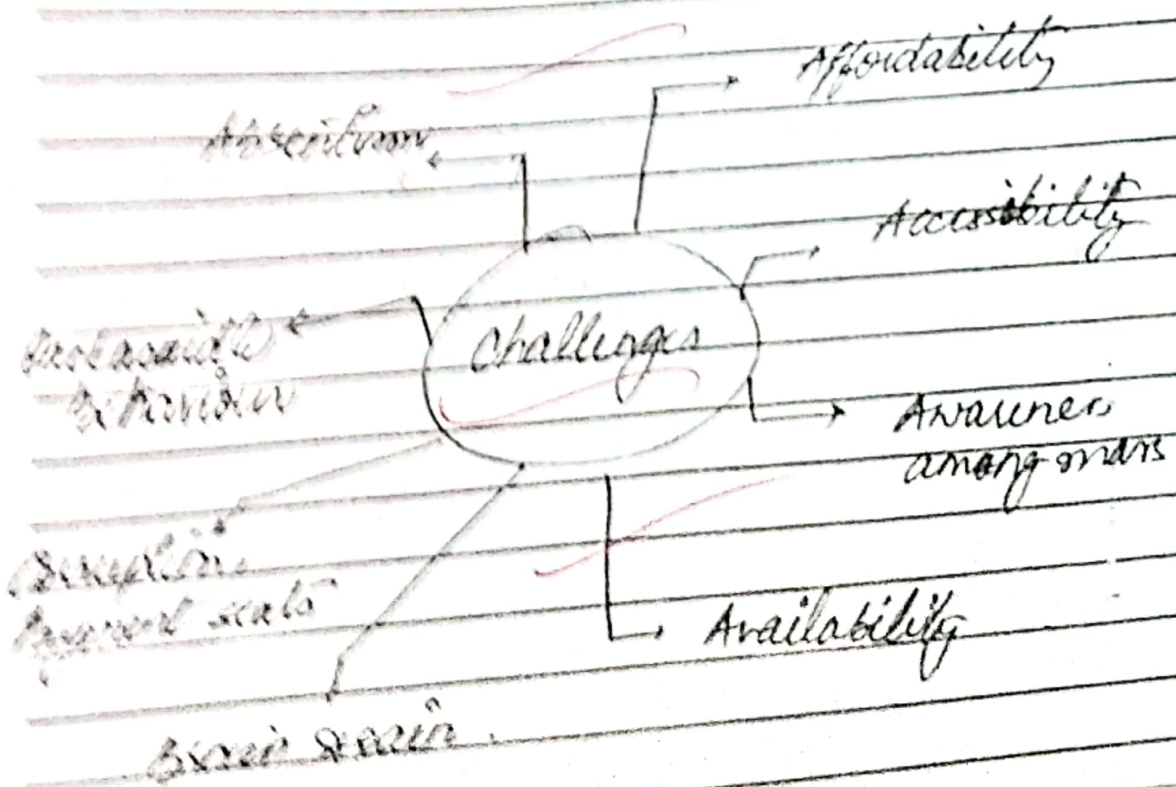 Affordability
Absenteeism
Accessibility
Challenges
Behaviour
Awareness
among mass
Corruption
seats
Availability
Brain drain.